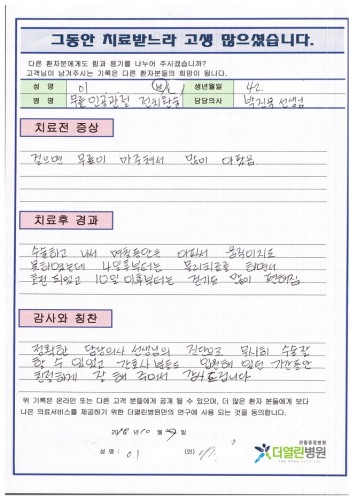 그동안 치료받느라 고생 많으셨습니다.
다른 환자분에게도 힘과 용기를 나누어 주시겠습니까?
고객님이 남겨주시는 기록은 다른 환자분들의 희망이 됩니다.
성 명 이 생년월일 42.
병 명 무릎 인공관절 전치환술 담당의사 선생님
치료전 증상
걸으면 무릎이 마주쳐서 많이 아팠음
치료후 경과
수술하고 나서 며칠동안은 아파서 움직이지도
못하였는데 4일후부터는 물리치료를 하면서
호전 되었고 10일 이후부터는 걷기도 많이 편해짐
감사와 칭찬
정확한 담당의사 선생님의 진단으로 무사히 수술잘
할 수 있었고 간호사 분들도 입원해 있던 기간동안
친절하게 잘 해 주어서 감사드립니다
위 기록은 온라인 또는 다른 고객 분들에게 공개 될 수 있으며, 더 많은 환자 분들에게 보다
나은 의료서비스를 제공하기 위한 더열린병원만의 연구에 사용 되는 것을 동의합니다.
2016년 10월
성 명 : 이 (인)
관절중점병원
더열린병원